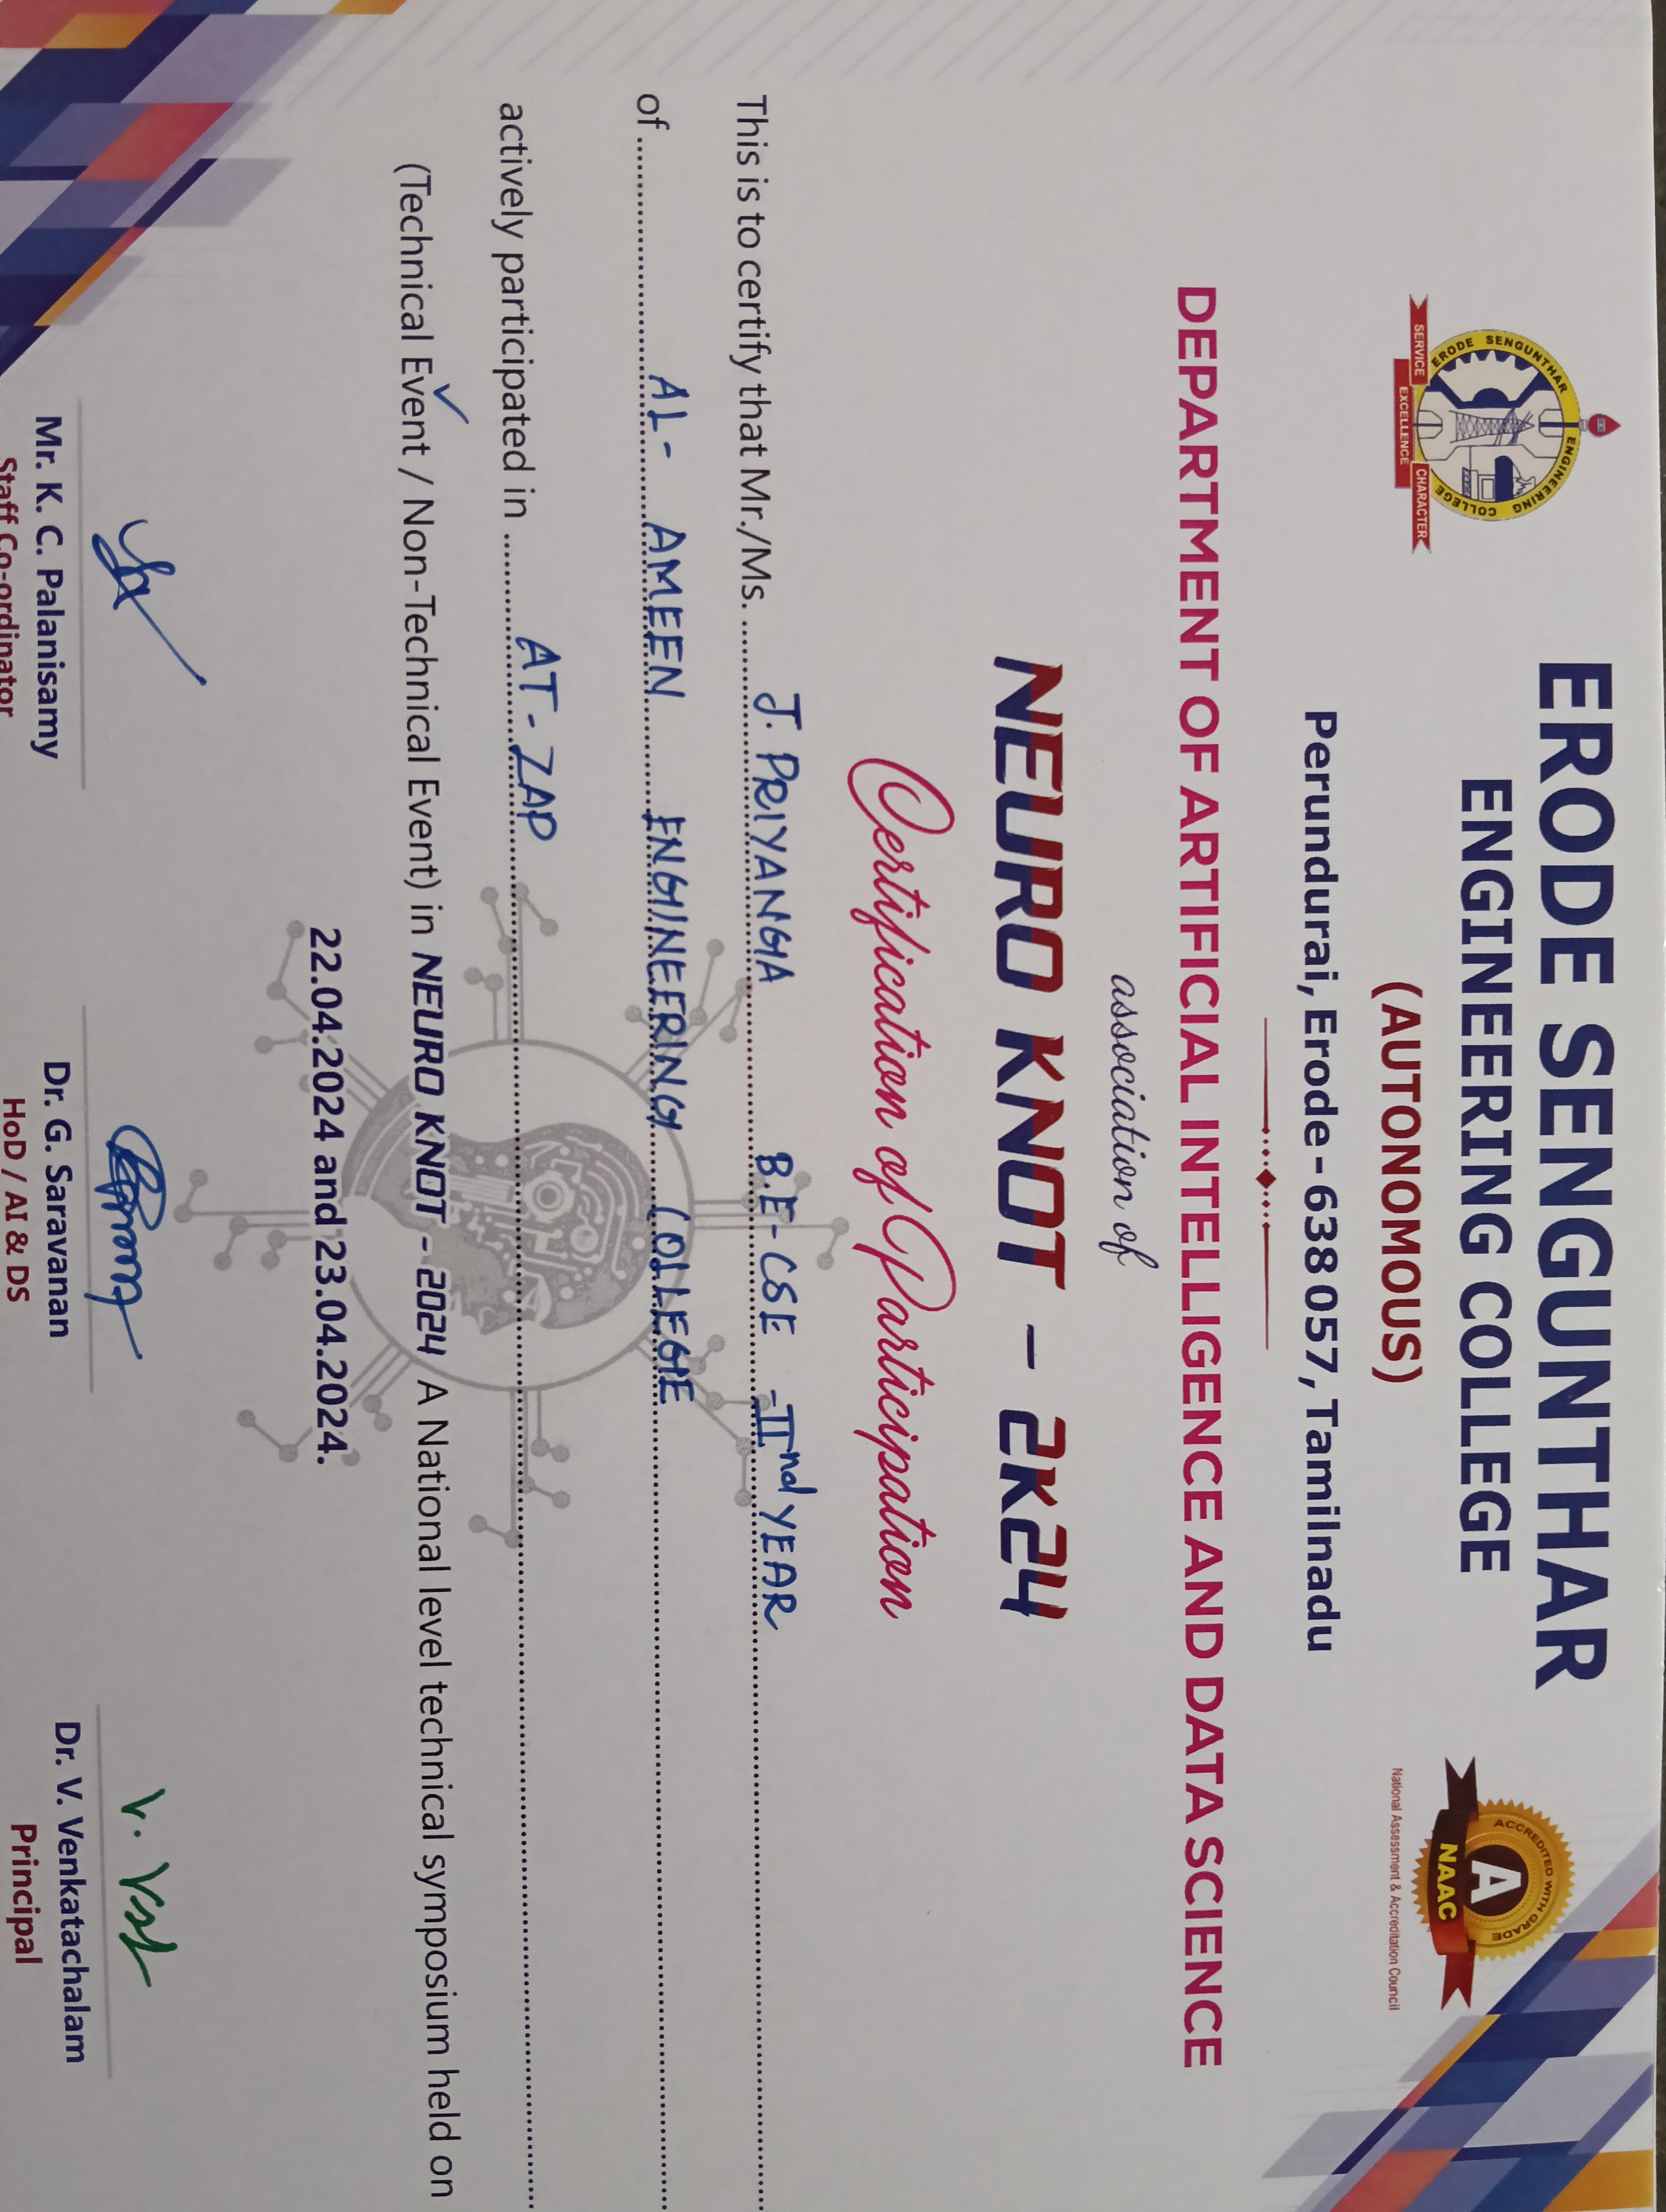 ERODE SENGUNTHAR ENGINEERING COLLEGE
SERVICE
EXCELLENCE
CHARACTER
ERODE SENGUNTHAR
ENGINEERING COLLEGE
(AUTONOMOUS)
Perundurai, Erode - 638 057, Tamilnadu
ACCREDITED WITH GRADE
A
NAAC
National Assessment & Accreditation Council
DEPARTMENT OF ARTIFICIAL INTELLIGENCE AND DATA SCIENCE
association of
NEURO KNOT - 2K24
Certification of Participation
This is to certify that Mr./Ms. J. PRIYANGA B.E - CSE - IInd YEAR
of AL - AMEEN ENGINEERING COLLEGE
actively participated in AT - ZAP
(Technical Event / Non-Technical Event) in NEURO KNOT - 2024 A National level technical symposium held on
22.04.2024 and 23.04.2024.
Mr. K. C. Palanisamy
Staff Co-ordinator
Dr. G. Saravanan
HoD / AI & DS
V. 
Dr. V. Venkatachalam
Principal